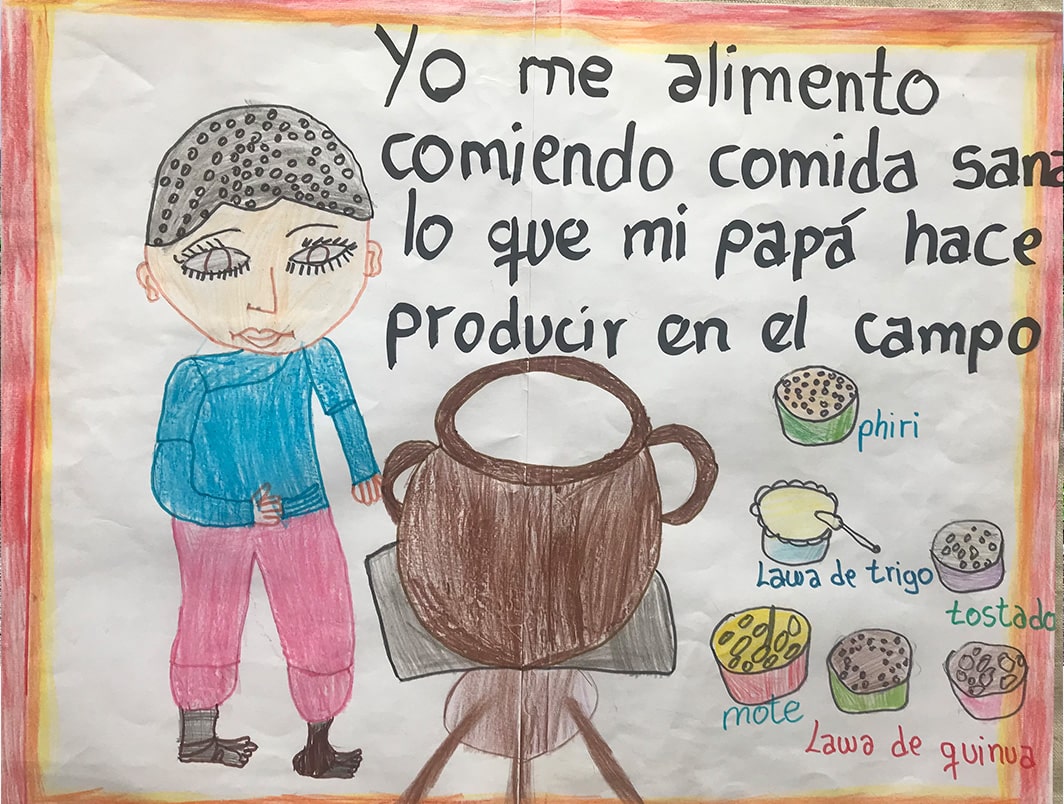 Yo me alimento
comiendo comida sana
lo que mi papá hace
producir en el campo
phiri
Lawa de trigo
tostado
mote
Lawa de quinua